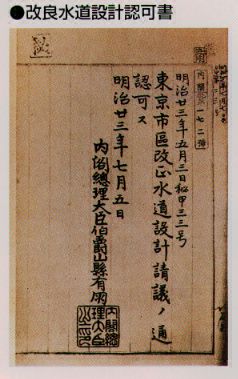 ●改良水道設計認可書
内閣批第一七二號
明治廿三年五月三日秘甲三三号
東京市區改正水道設計請議ノ通
認可ス
明治廿三年七月五日
内閣總理大臣伯爵山縣有朋
内閣總
理大臣
之印